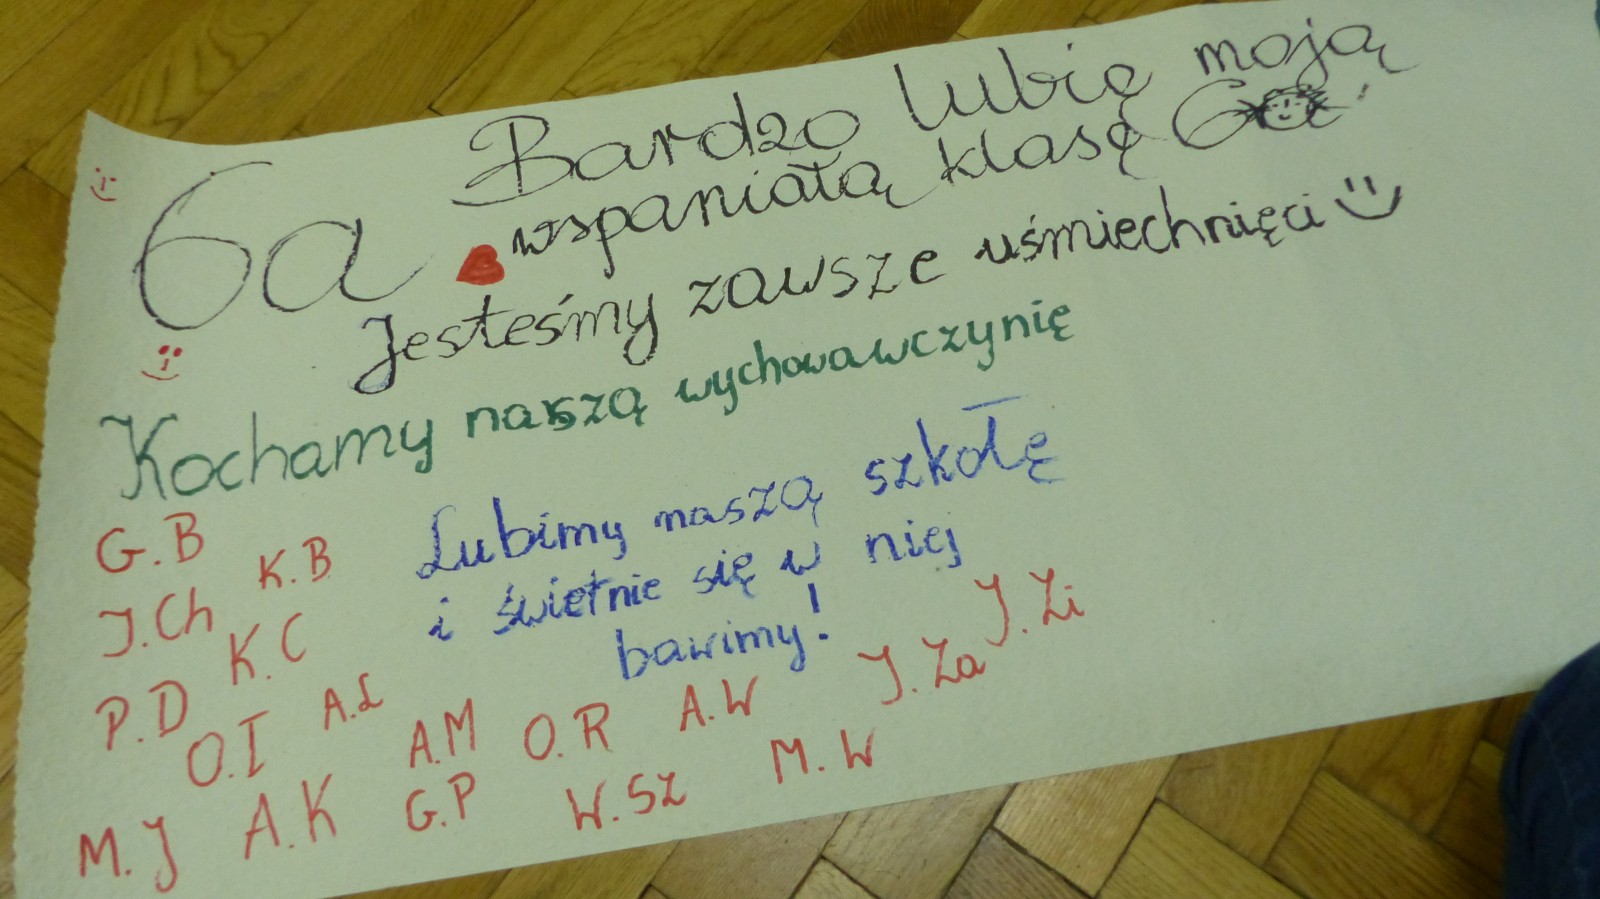 6a
Bardzo lubię moją
wspaniałą klasę 6a!
Jesteśmy zawsze uśmiechnięci
Kochamy naszą wychowawczynię
Lubimy naszą szkołę
i świetnie się w niej
bawimy!
G.B
K.B
J.Ch
K.C
P.D
O.I
A.Ł
A.M
O.R
A.W
J.Za
J.Zi
M.J
A.K
G.P
W.SZ
M.W